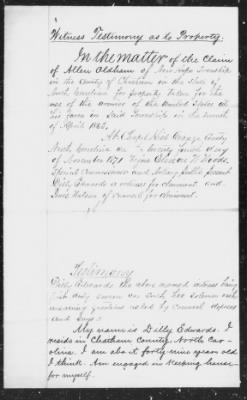 Witness Testimony as to Property.
In the matter of the claim
of Allen Oldham of New Hope Township
in the County of Chatham in the State of
North Carolina for property taken for the
use of the armies of the United States on
his farm in said Township in the month
of April 1865.
At Chapel Hill Orange County
North Carolina on
of November 1871 before
Special Commissioner and
Dilly Edwards a witness for claimant and
of counsel for claimant.
Testimony
Dilly Edwards the above named witness being
first duly sworn on such her solemn oath
answering questions asked by counsel deposes
and says:
My name is Dilly Edwards. I
reside in Chatham County, North Car-
olina. I am about forty nine years old
I think. Am engaged in keeping house
for myself.